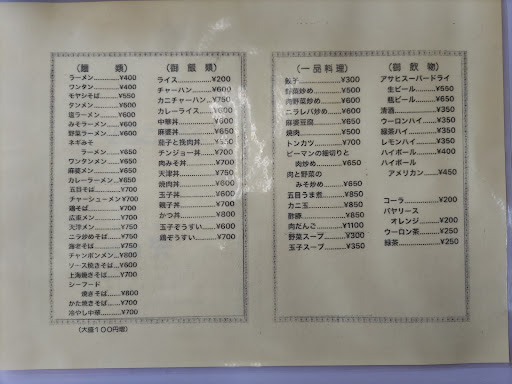 (麺　類)
ラーメン…………¥400
ワンタン…………¥400
モヤシそば………¥550
タンメン…………¥600
塩ラーメン………¥600
みそラーメン……¥600
野菜ラーメン……¥600
ネギみそ
ラーメン……¥650
ワンタンメン……¥650
麻婆メン…………¥650
カレーラーメン…¥650
五目そば…………¥700
チャーシューメン¥700
鶏そば……………¥700
広東メン…………¥750
天津メン…………¥750
ニラ炒めそば……¥750
海老そば…………¥750
チャンポンメン…¥800
ソース焼きそば…¥600
上海焼きそば……¥700
シーフード
焼きそば……¥800
かた焼きそば……¥700
冷やし中華………¥700
(大盛１００円増)
(御飯類)
ライス……………¥200
チャーハン………¥600
カニチャーハン…¥750
カレーライス……¥600
中華丼……………¥650
麻婆丼……………¥650
茄子と挽肉丼……¥550
チンジョー丼……¥700
肉みそ丼…………¥700
天津丼……………¥750
焼肉丼……………¥600
玉子丼……………¥600
親子丼……………¥700
かつ丼……………¥800
玉子ぞうすい……¥600
鶏ぞうすい………¥700
(一品料理)
餃子………………¥300
野菜炒め…………¥500
肉野菜炒め………¥600
ニラレバ炒め……¥600
麻婆豆腐…………¥650
焼肉………………¥500
トンカツ…………¥700
ピーマンの細切りと
肉炒め………¥650
肉と野菜の
みそ炒め……¥650
五目うま煮………¥850
カニ玉……………¥850
酢豚………………¥850
肉だんご…………¥1100
野菜スープ………¥300
玉子スープ………¥350
(御飲物)
アサヒスーパードライ
生ビール………¥550
瓶ビール………¥650
清酒………………¥350
ウーロンハイ……¥350
緑茶ハイ…………¥350
レモンハイ………¥350
ハイボール………¥400
ハイボール
アメリカン……¥450
コーラ……………¥200
バヤリース
オレンジ………¥200
ウーロン茶………¥250
緑茶………………¥250